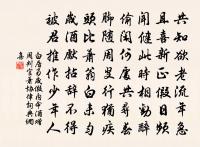 共知欲老流年急
且喜新正假日頻
聞健此時相勸醉
偷閑何處共尋春
脚隨周叟行猶疾
頭比蕭翁白未勻
歲酒先拈辭不得
被君推作少年人
白居易歲假内命酒贈
周判官蕭協律詞典網